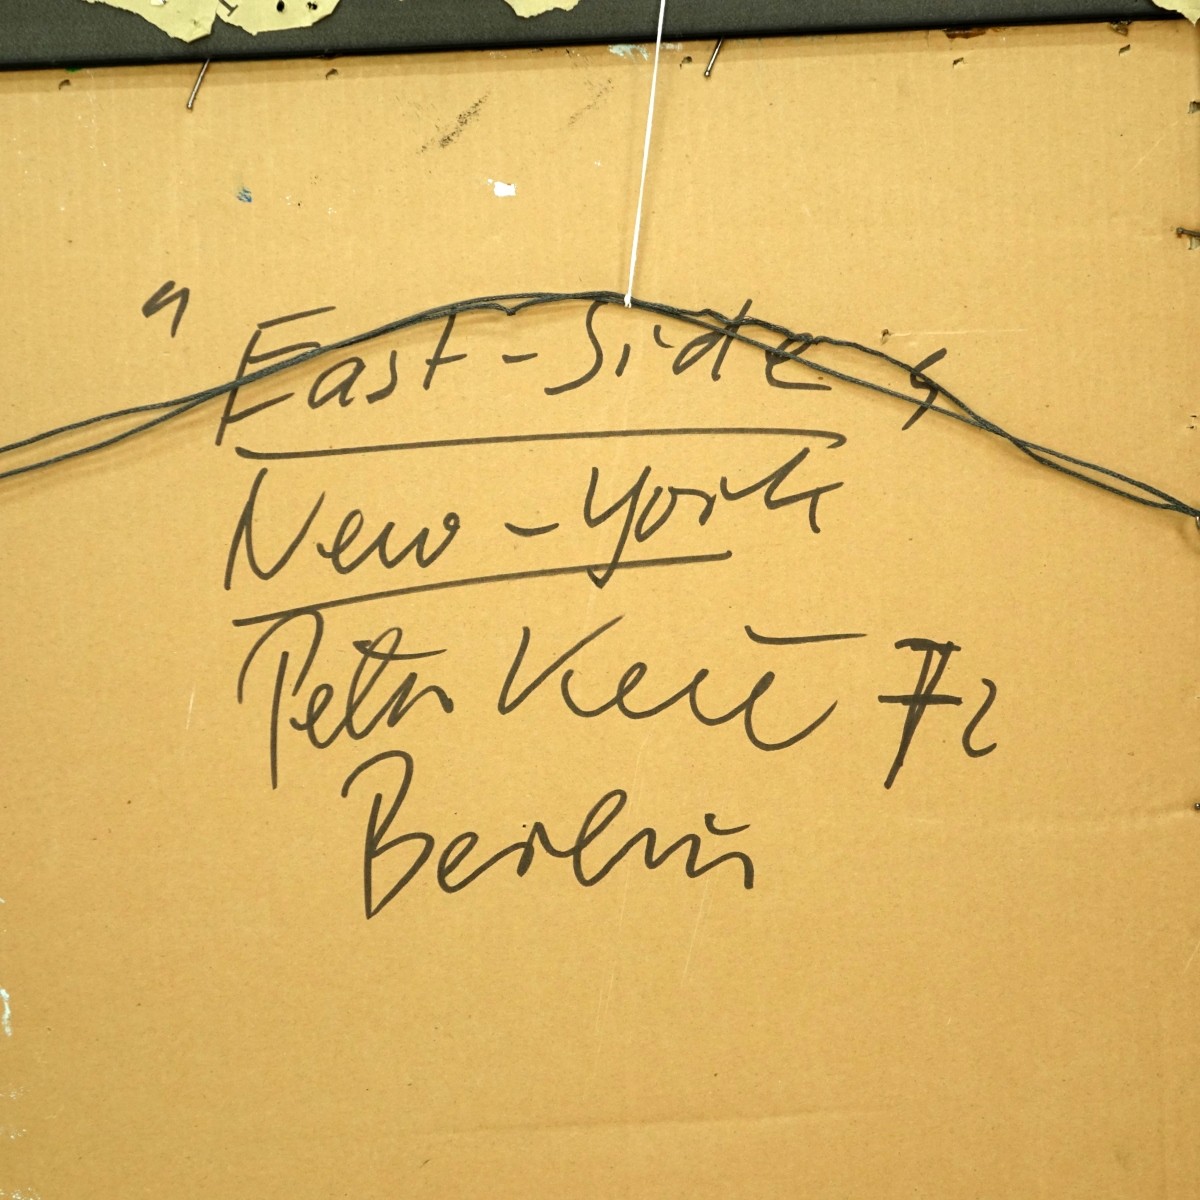 " East-Side "
New-York
Peter 72
Berlin